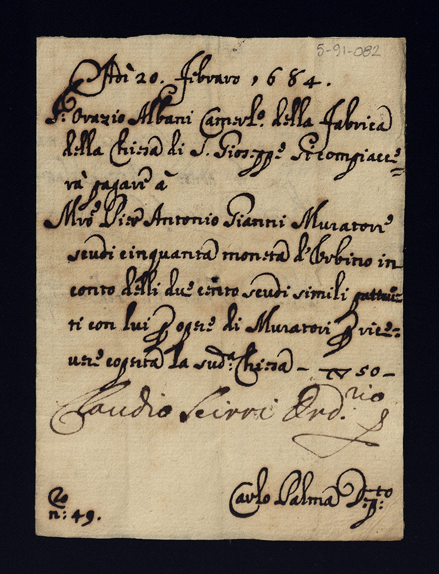 5-91-082
Adì 20. Febraro 1684.
Sr. Orazio Albani Camerlo. della Fabrica
della Chiesa di S. Gioseppe Si compiacce=
rà pagare à
Mro. Pier Antonio Gianni Muratore
scudi cinquanta moneta d'Urbino in
conto delli due cento scudi simili pattui=
ti con lui p opere di Muratori p rice=
vere coperta la suda. Chiesa — 50 —
Claudio Scirri Ord.rio
Carlo Palma D:to
n: 49.